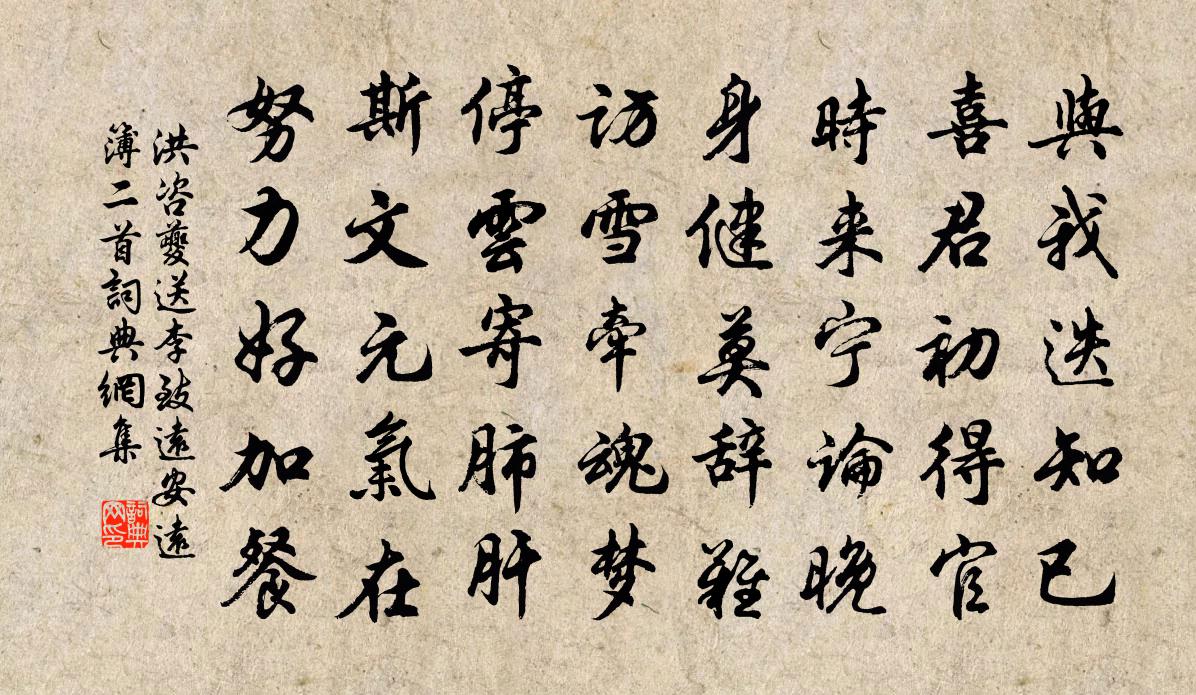 與我迭知已
喜君初得官
時来宁論晚
身健莫辞難
訪雪牽魂梦
停雲寄肺肝
斯文元氣在
努力好加餐
洪咨夔送李致遠安遠
簿二首詞典網集
詞典
网印